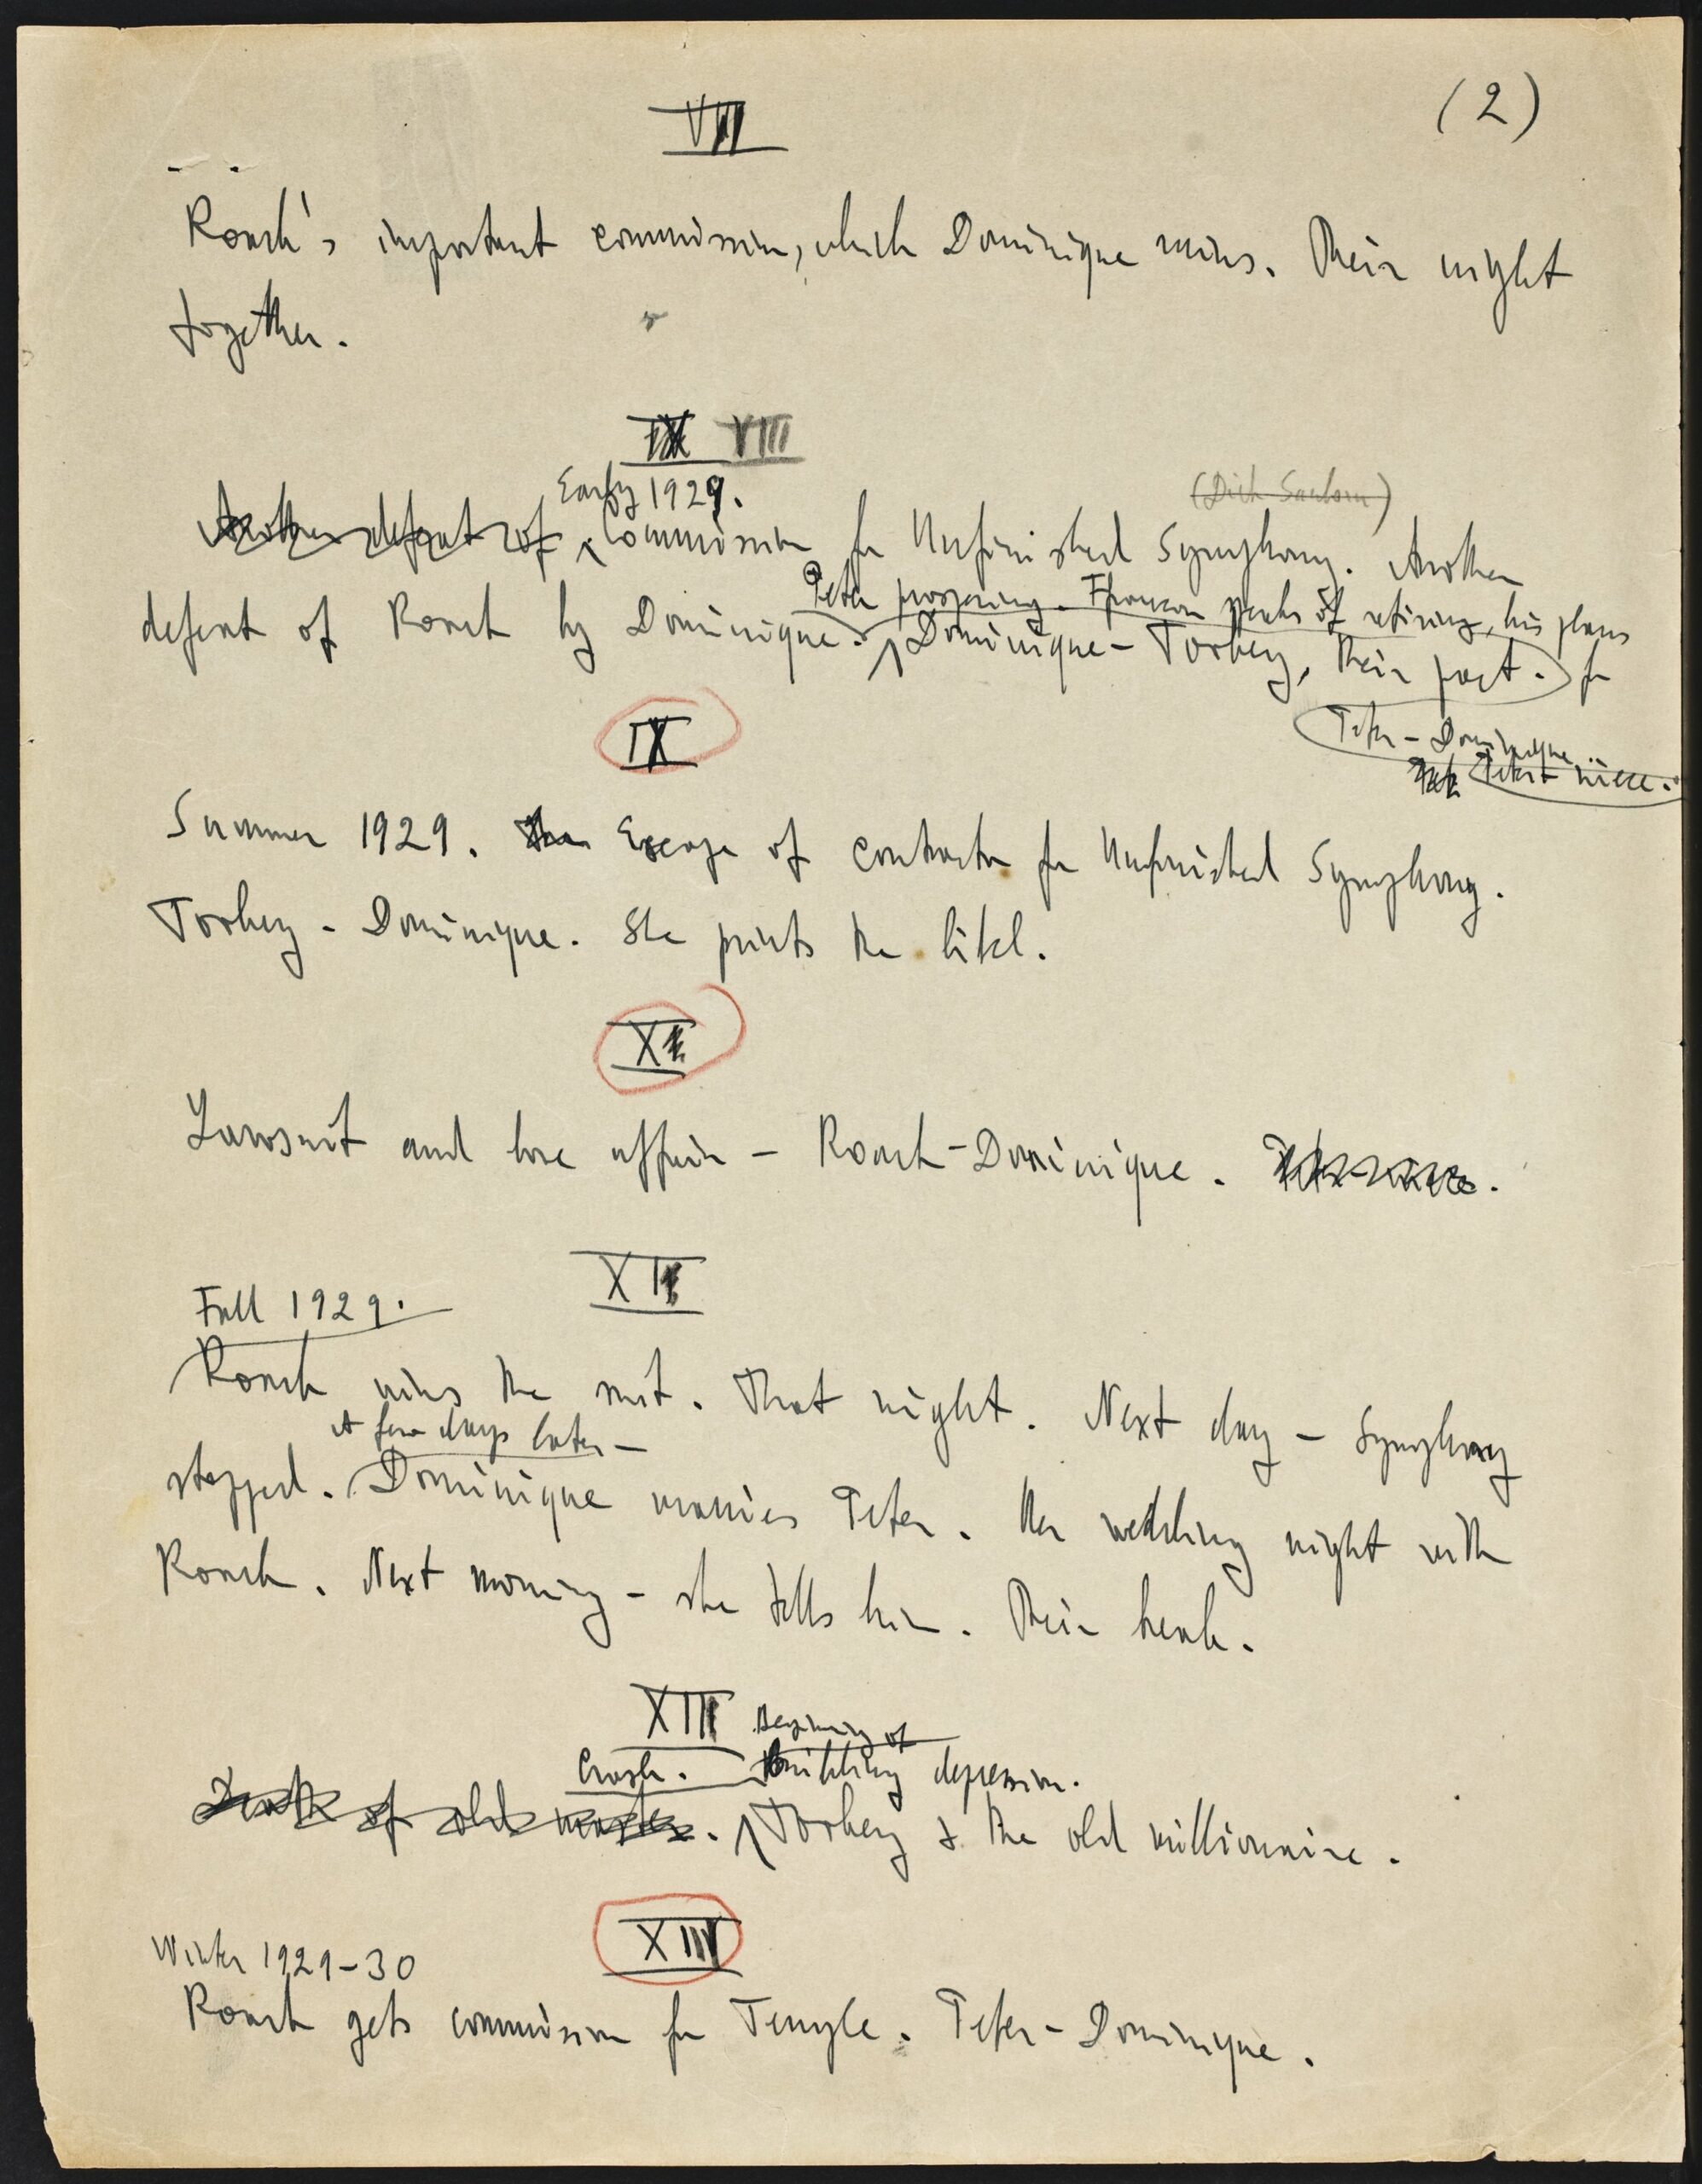 (2)
VII
Roark's important commission, which Dominique ruins. Their night
together.
IX VIII
Early 1929.
(Dick Sanborn)
Another defeat of Commission for Unfinished Symphony. Another
Peter prospering. Francon speaks of retiring, his plans
defeat of Roark by Dominique. Dominique - Toohey, their pact. for
Peter - Dominique.
Peter + niece.
IX
Summer 1929. Escape of contractor for Unfinished Symphony.
Toohey - Dominique. She prints the libel.
X
Lawsuit and love affair - Roark - Dominique.
XI
Fall 1929.
Roark wins the suit. That night. Next day - Symphony
A few days later -
stopped. Dominique marries Peter. Her wedding night with
Roark. Next morning - she tells him. Their break.
XII
Beginning of
Crash. building depression.
Death of old master. Toohey & the old millionaire.
XIII
Winter 1929-30
Roark gets commission for Temple. Peter - Dominique.